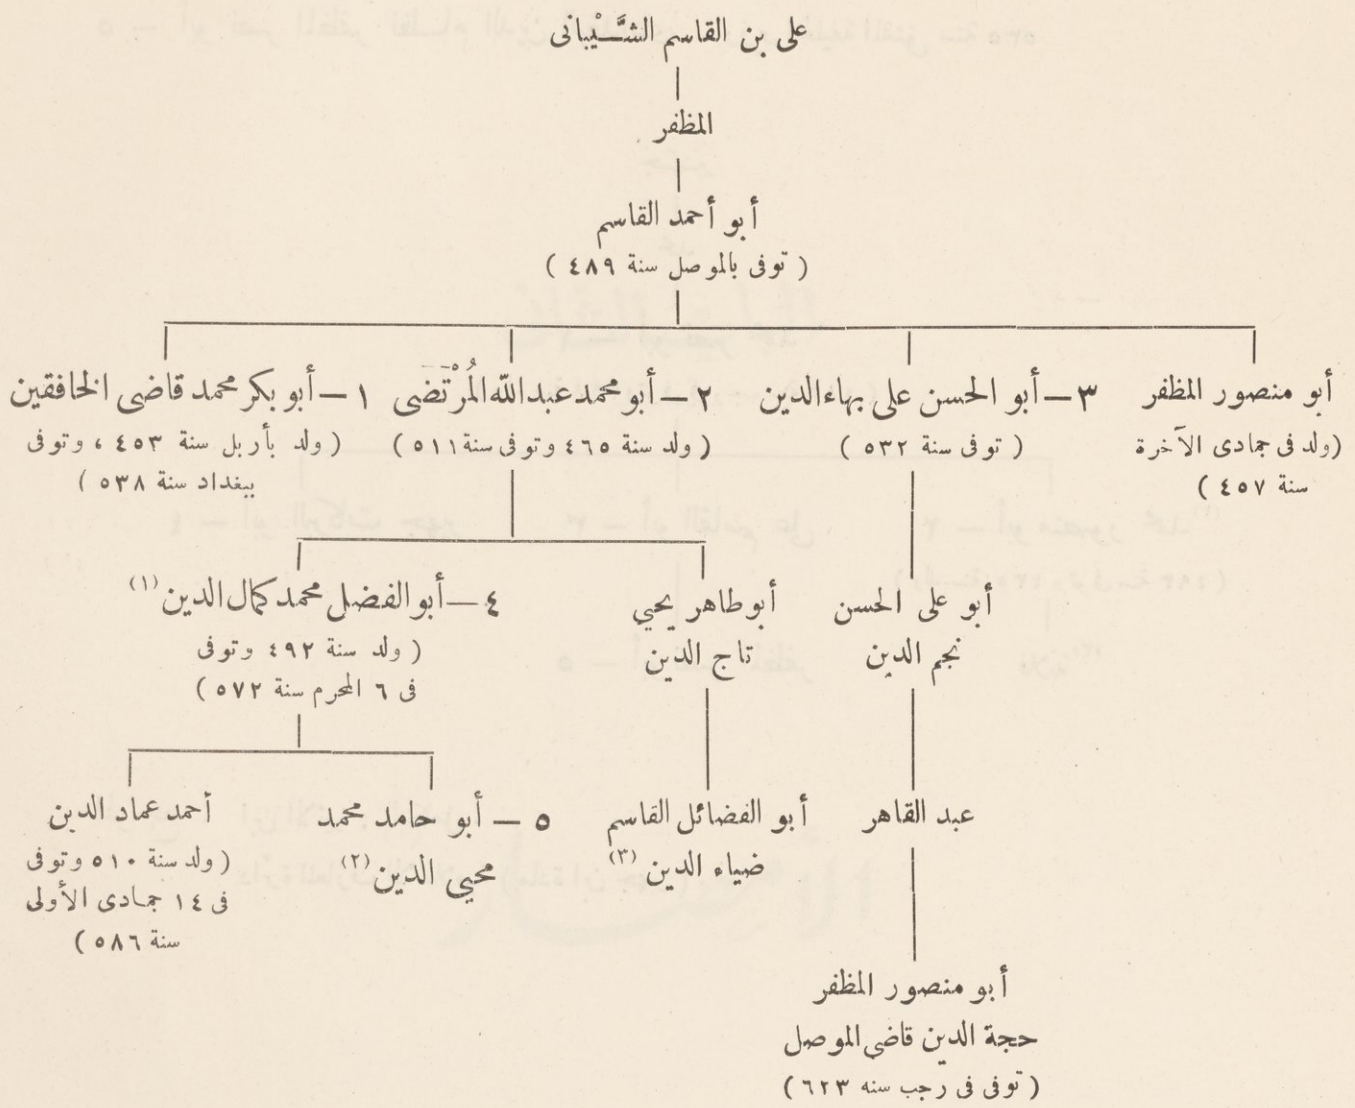 على بن القاسم الشَّيْبانى
المظفر
أبو أحمد القاسم
( توفى بالموصل سنة ٤٨٩ )
أبو منصور المظفر
(ولد فى جمادى الآخرة
سنة ٤٥٧ )
٣ — أبو الحسن على بهاء الدين
( توفى سنة ٥٣٢ )
٢ — أبو محمد عبد الله المُرْتَضى
( ولد سنة ٤٦٥ وتوفى سنة ٥١١ )
١ — أبو بكر محمد قاضى الخافقين
( ولد بأربل سنة ٤٥٣ ، وتوفى
ببغداد سنة ٥٣٨ )
أبو على الحسن
نجم الدين
أبو طاهر يحيي
تاج الدين
٤ — أبو الفضل محمد كمال الدين (١)
( ولد سنة ٤٩٢ وتوفى
فى ٦ المحرم سنة ٥٧٢ )
عبد القاهر
أبو الفضائل القاسم
ضياء الدين (٣)
٥ — أبو حامد محمد
محيي الدين (٢)
أحمد عماد الدين
( ولد سنة ٥١٠ وتوفى
فى ١٤ جمادى الأولى
سنة ٥٨٦ )
أبو منصور المظفر
حجة الدين قاضى الموصل
( توفى فى رجب سنه ٦٢٣ )